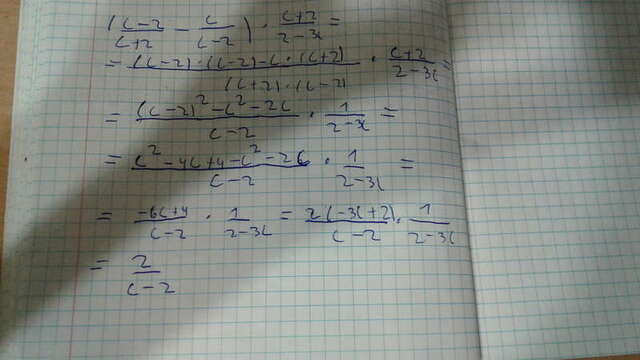 (c-2/c+2 - c/c-2) · c+2/2-3c =
= (c-2)·(c-2)-c·(c+2)/(c+2)·(c-2) · c+2/2-3c =
= (c-2)²-c²-2c/c-2 · 1/2-3c =
= c²-4c+4-c²-2c/c-2 · 1/2-3c =
= -6c+4/c-2 · 1/2-3c = 2(-3c+2)/c-2 · 1/2-3c
= 2/c-2